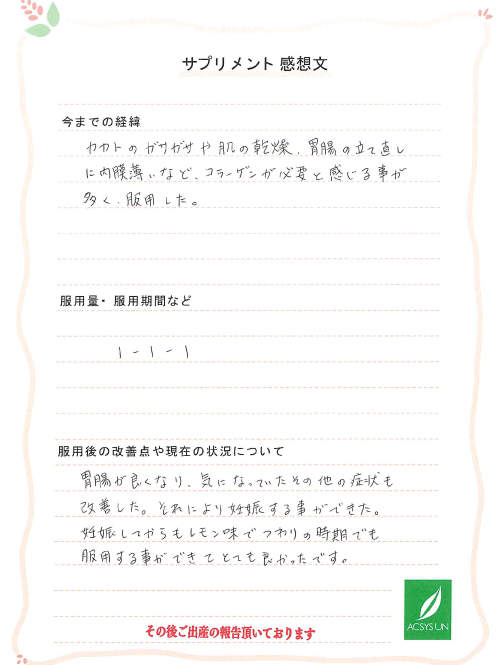 サプリメント 感想文
今までの経緯
カカトのガサガサや肌の乾燥、胃腸の立て直し
に内膜薄いなど、コラーゲンが必要と感じる事が
多く、服用した。
服用量・服用期間など
1 - 1 - 1
服用後の改善点や現在の状況について
胃腸が良くなり、気になっていたその他の症状も
改善した。それにより妊娠する事ができた。
妊娠してからもレモン味でつわりの時期でも
服用する事ができてとても良かったです。
その後ご出産の報告頂いております
ACSYSUN